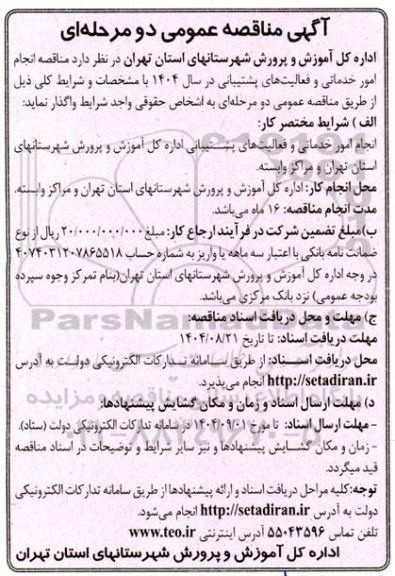 آگهی مناقصه عمومی دو مرحله‌ای
اداره کل آموزش و پرورش شهرستانهای استان تهران در نظر دارد مناقصه انجام
امور خدماتی و فعالیت‌های پشتیبانی در سال ۱۴۰۴ با مشخصات و شرایط کلی ذیل
از طریق مناقصه عمومی دو مرحله‌ای به اشخاص حقوقی واجد شرایط واگذار نماید:
الف ) شرایط مختصر کار:
انجام امور خدماتی و فعالیت‌های پشتیبانی اداره کل آموزش و پرورش شهرستانهای
استان تهران و مراکز وابسته.
محل انجام کار: اداره کل آموزش و پرورش شهرستانهای استان تهران و مراکز وابسته.
مدت انجام مناقصه: ۱۶ ماه می‌باشد.
ب) مبلغ تضمین شرکت در فرآیند ارجاع کار: مبلغ ۲۰/۰۰۰/۰۰۰/۰۰۰ ریال از نوع
ضمانت نامه بانکی با اعتبار سه ماهه یا واریز به شماره حساب ۴۰۷۴۰۳۱۲۰۷۸۶۵۵۱۸
در وجه اداره کل آموزش و پرورش شهرستانهای استان تهران(بنام تمرکز وجوه سپرده
بودجه عمومی) نزد بانک مرکزی می‌باشد.
ج) مهلت و محل دریافت اسناد مناقصه:
مهلت دریافت اسناد: تا تاریخ ۱۴۰۴/۰۸/۲۱
محل دریافت اسناد: از طریق سامانه تدارکات الکترونیکی دولت به آدرس
http://setadiran.ir انجام می‌پذیرد.
د) مهلت ارسال اسناد و زمان و مکان گشایش پیشنهادها:
- مهلت ارسال اسناد: تا مورخ ۱۴۰۴/۰۹/۰۱ در سامانه تدارکات الکترونیکی دولت (ستاد).
- زمان و مکان گشایش پیشنهادها و نیز سایر شرایط و توضیحات در اسناد مناقصه
قید میگردد.
توجه: کلیه مراحل دریافت اسناد و ارائه پیشنهادها از طریق سامانه تدارکات الکترونیکی
دولت به آدرس http://setadiran.ir انجام می‌شود.
تلفن تماس ۵۵۰۴۳۵۹۶ آدرس اینترنتی www.teo.ir
اداره کل آموزش و پرورش شهرستانهای استان تهران
ParsNamadData